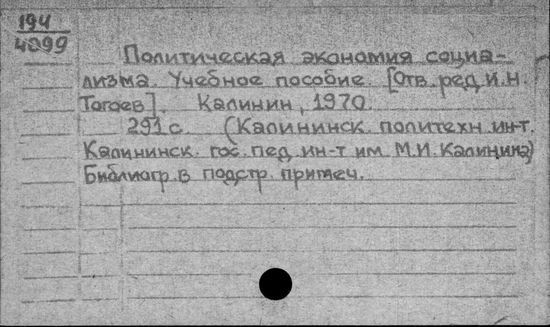 194
4099
Политическая экономия социа-
лизма. Учебное пособие. [Отв. ред. И.Н.
Тогаев]. Калинин, 1970.
291 с. (Калининск. политехн. ин-т.
Калининск. гос. пед. ин-т им. М.И. Калинина)
Библиогр. в подстр. примеч.